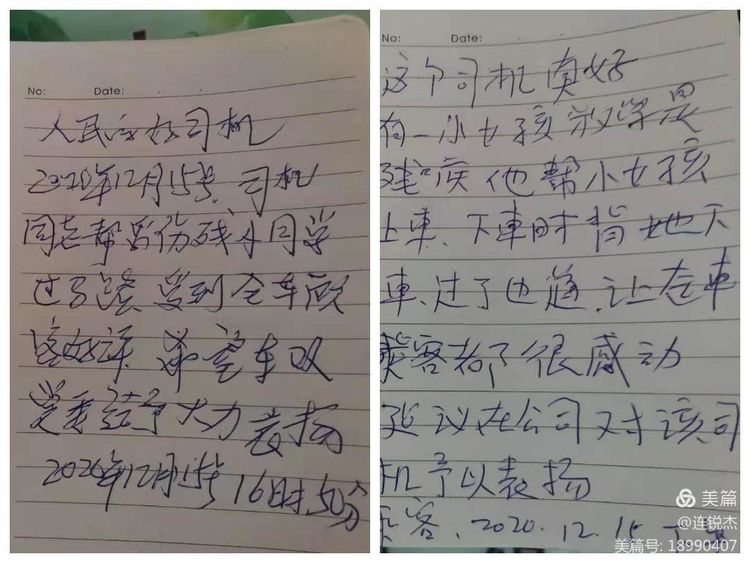 No: Date:
人民的好司机
2020年12月15号, 司机
同志帮助伤残小同学
过马路, 受到全车旅
客好评, 希望车队
党委给予大力表扬
2020年12月15号16时50分
No: Date:
这个司机真好
有一小女孩放学是
残疾他帮小女孩
上車、下車时背她下
車、过了地道, 让在車
乘客都很感动
建议在公司对该司
机予以表扬
乘客、2020.12.15 下
美篇
@连锐杰
美篇号: 18990407